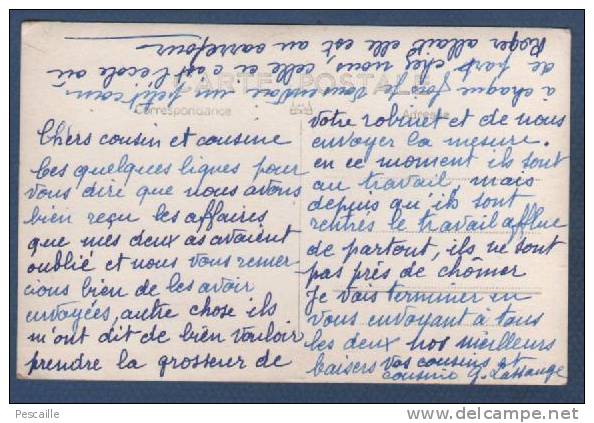 CARTE POSTALE
Correspondance
Adresse
Chers cousin et cousine
Ces quelques lignes pour
vous dire que nous avons
bien reçu les affaires
que mes deux as avaient
oublié et nous vous remer
cions bien de les avoir
envoyées, autre chose ils
m'ont dit de bien vouloir
prendre la grosseur de
votre robinet et de nous
envoyer la mesure.
en ce moment ils sont
au travail, mais
depuis qu'ils sont
rentrés le travail afflue
de partout, ils ne sont
pas près de chômer
Je vais terminer en
vous envoyant à tous
les deux nos meilleurs
baisers vos cousins et
cousine G. Lassauge
à chaque fois je vous envoie un petit coin
de part chez nous, celle ci c'est l'école où
Roger allait elle est au carrefour
Pescaille
http://www.delcampe.net